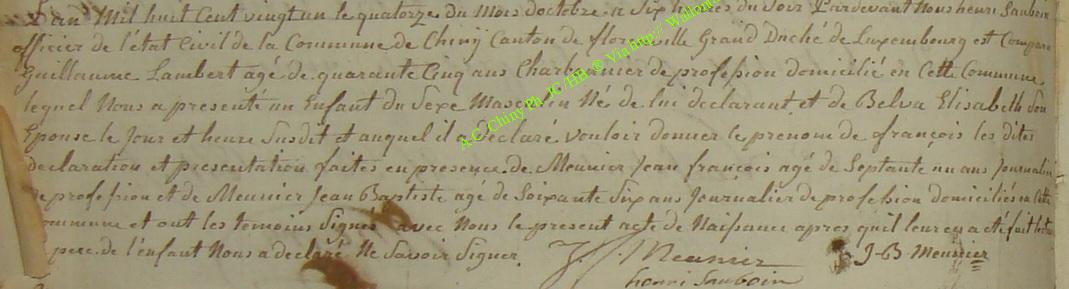 L'an Mil huit Cent vingt un le quatorze du Mois doctobre a Six heures du Soir Pardevant Nous henri Sauboin
officier de l'état Civil de la Commune de Chiny Canton de florenville Grand Duché de Luxembourg est Comparu
Guillaume Lambert agé de quarante Cinq ans Charbonnier de profession domicilié en Cette Commune
lequel Nous a presenté un Enfant du Sexe Masculin Né de lui declarant et de Belva Elisabeth Son
Epouse le Jour et heure Susdit et auquel il a declaré vouloir donner le prenom de françois les dites
declaration et presentation faites en presence de Meunier Jean françois agé de Septante un ans Journalier
de profession et de Meunier Jean Baptiste agé de Soixante Six ans Journalier de profession domiciliés en Cette
Commune et ont les temoins Signés avec Nous le present acte de Naissance apres quil leur en a été fait lecture
pere de l'enfant Nous a declaré Ne Savoir Signer.
J. f. Meunier
J-B Meunier
henri Sauboin
A.G. Chiny Ph. JC HB @ Via http// Wallonie